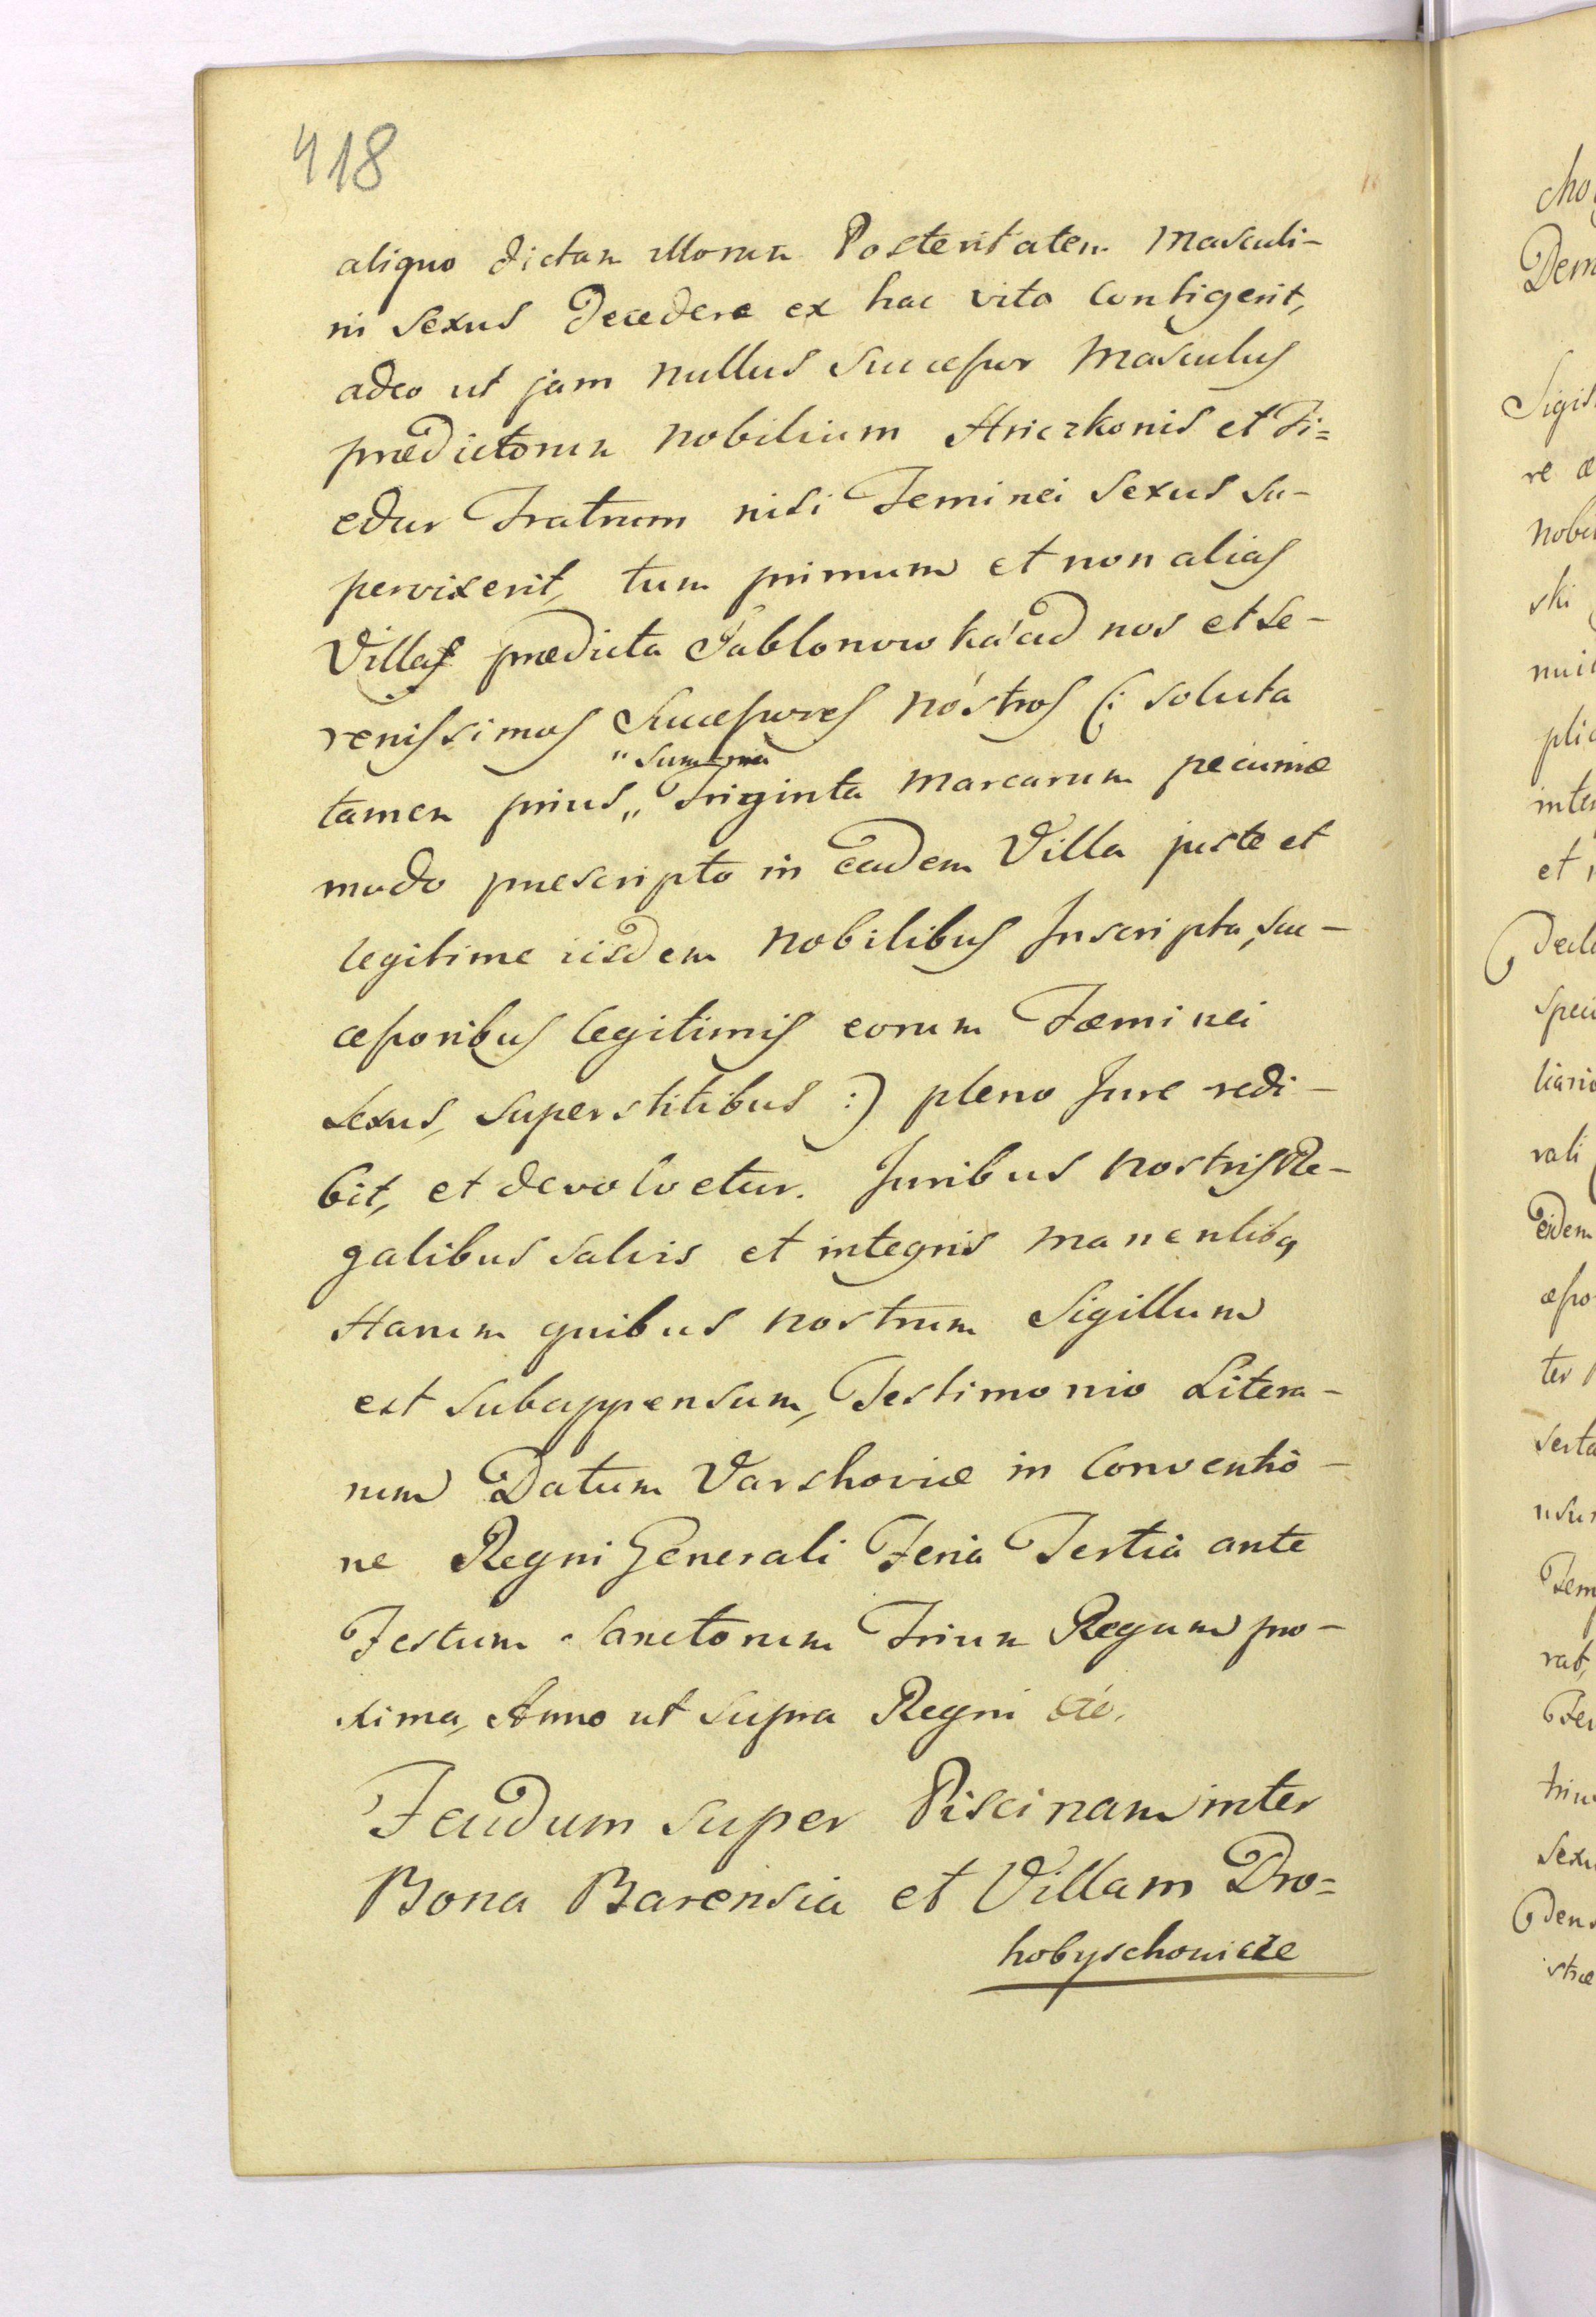 418
aliquo dictam illorum Posteritatem Masculi-
ni sexus decedere ex hac vita Contigerit,
adeo ut jam nullus Successor Masculus
prædictorum Nobilium Hriczkonis et Fi=
edur Fratrum nisi Feminei Sexus su-
pervixerit, tum primum et non alias
Villa prædicta Jablonowka ad nos et Se-
renissimos Successores nostros (: soluta
"Summa
tamen prius,, Triginta Marcarum pecuniæ
modo præscripto in eadem Villa juste et
legitime iisdem Nobilibus Inscripta, suc-
cessoribus legitimis eorum Fæminei
Sexus, superstitibus :) pleno Jure redi-
bit, et devolvetur. Juribus nostris Re-
galibus salvis et integris manentibq
Harum quibus nostrum Sigillum
est subappensum, Testimonio Litera-
rum Datum Varshoviæ in Conventio-
ne Regni Generali Feria Tertia ante
Festum Sanctorum Trium Regum pro-
xima, Anno ut supra Regni etc.
Feudum super Piscinam inter
Bona Barensia et Villam Dro=
hobyschowicze
cho
Dem
Sigis
re
nobi
ski
plic
inter
et
Decla
speci
liario
rali
eidem
ter
serta
Fem
rat,
triu
Sexu
dens